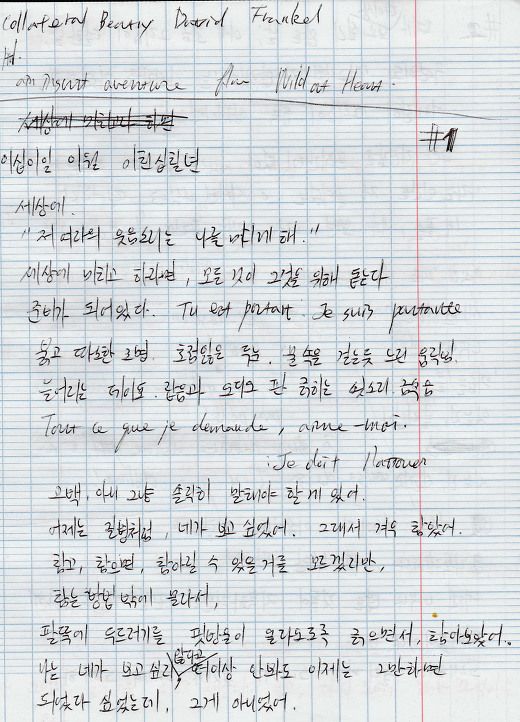 Collateral Beauty David Frankel
from Wild at Heart.
#1
이십이일 이월 이천십칠년
세상에.
"저 여자의 웃음소리는 나를 미치게 해."
세상에 미치고 하려면, 모든 것이 그것을 위해 돕는다
준비가 되어있다. Tu est partant. Je suis partante
붉고 따스한 조명. 초점잃은 두눈. 물속을 걷는듯 느린 움직임.
늘어지는 테이프 리듬과 오디오 판 긁히는 쇳소리
Tout ce que je demande, aime-moi.
고백, 아니 그냥 솔직히 말해야 할 게 있어.
어제는 질법처럼, 네가 보고 싶었어. 그래서 겨우 참았어.
참고, 참으면, 참아질 수 있을거를 모르겠지만,
참는 방법 밖에 몰라서,
팔뚝에 두드러기를 핏방울이 올라오도록 긁으면서, 참아보았어.
나는 네가 보고싶다 않다고, 더이상 안봐도 이제는 그만하면
되었다 싶었는데, 그게 아니었어.